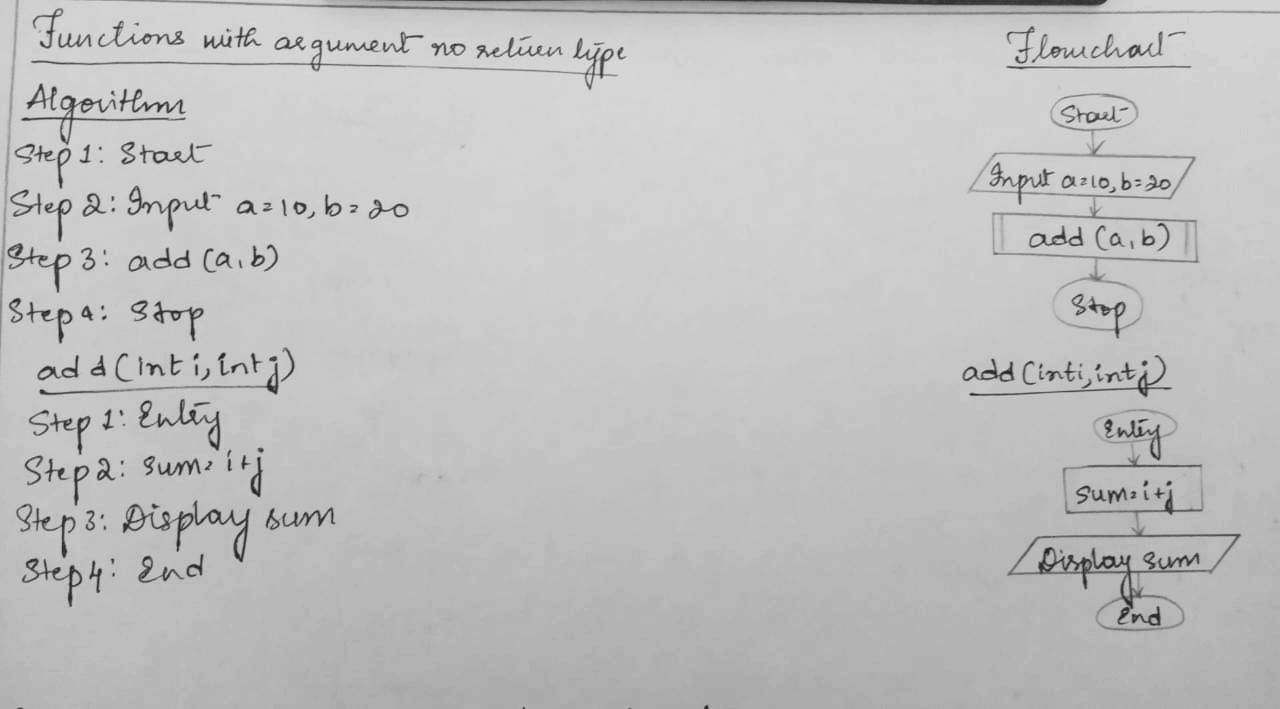 Functions with argument no return type
Algorithm
Step 1: Start
Step 2: Input a=10, b=20
Step 3: add (a, b)
Step 4: Stop
add (int i, int j)
Step 1: Entry
Step 2: sum= i+j
Step 3: Display sum
Step 4: End
Flowchart
Start
Input a=10, b=20
add (a, b)
Stop
add (int i, int j)
Entry
sum=i+j
Display sum
End